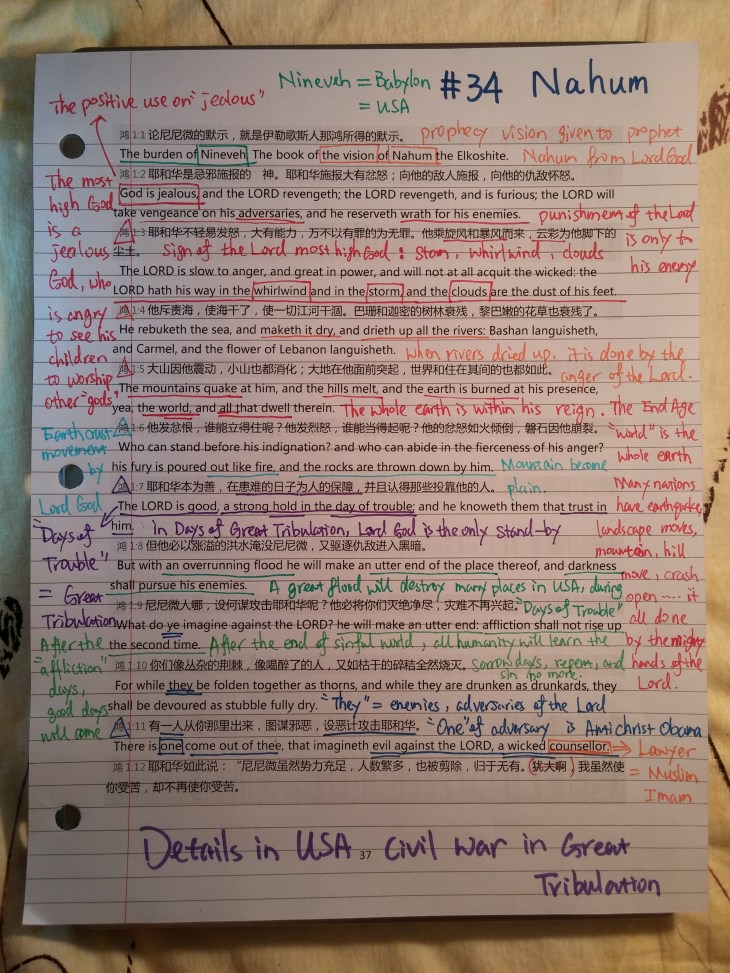 Nineveh = Babylon
= USA
#34 Nahum
The positive use on "jealous"
鸿 1:1 论尼尼微的默示，就是伊勒歌斯人那鸿所得的默示。
prophecy vision given to prophet
The burden of Nineveh. The book of the vision of Nahum the Elkoshite.
Nahum from Lord God
鸿 1:2 耶和华是忌邪施报的 神。耶和华施报大有忿怒；向他的敌人施报，向他的仇敌怀怒。
God is jealous, and the LORD revengeth; the LORD revengeth, and is furious; the LORD will
take vengeance on his adversaries, and he reserveth wrath for his enemies.
punishment of the Lord
is only to
his enemy
The most
high God
is a
jealous
God, who
is angry
to see his
children
to worship
other "gods"
鸿 1:3 耶和华不轻易发怒，大有能力，万不以有罪的为无罪。他乘旋风和暴风而来，云彩为他脚下的
尘土。
Sign of the Lord most high God : storm, whirlwind, clouds
The LORD is slow to anger, and great in power, and will not at all acquit the wicked: the
LORD hath his way in the whirlwind and in the storm, and the clouds are the dust of his feet.
鸿 1:4 他斥责海，使海干了，使一切江河干涸。巴珊和迦密的树林衰残，黎巴嫩的花草也衰残了。
He rebuketh the sea, and maketh it dry, and drieth up all the rivers: Bashan languisheth,
and Carmel, and the flower of Lebanon languisheth.
When rivers dried up, it is done by the
anger of the Lord.
鸿 1:5 大山因他震动，小山也都消化；大地在他面前突起，世界和住在其间的也都如此。
The mountains quake at him, and the hills melt, and the earth is burned at his presence,
yea, the world, and all that dwell therein.
The whole earth is within his reign. The End Age
"world" is the
whole earth
鸿 1:6 他发忿恨，谁能立得住呢？他发烈怒，谁能当得起呢？他的忿怒如火倾倒，磐石因他崩裂。
Who can stand before his indignation? and who can abide in the fierceness of his anger?
his fury is poured out like fire, and the rocks are thrown down by him.
Mountain become
plain.
Earth crust
movement
by
Lord God
Many nations
have earthquakes,
landscape moves,
mountain, hill
move, crash
open ..... it
all done
by the mighty
hands of the
Lord.
鸿 1:7 耶和华本为善，在患难的日子为人的保障，并且认得那些投靠他的人。
The LORD is good, a strong hold in the day of trouble; and he knoweth them that trust in
him.
in Days of Great Tribulation, Lord God is the only stand-by
"Days of
Trouble"
= Great
Tribulation
鸿 1:8 但他必以涨溢的洪水淹没尼尼微，又驱逐仇敌进入黑暗。
But with an overrunning flood he will make an utter end of the place thereof, and darkness
shall pursue his enemies.
A great flood will destroy many places in USA, during
"Days of Trouble"
鸿 1:9 尼尼微人哪，设何谋攻击耶和华呢？他必将你们灭绝净尽；灾难不再兴起。
What do ye imagine against the LORD? he will make an utter end: affliction shall not rise up
the second time.
After the end of sinful world, all humanity will learn the
sorrow days, repent, and
sin no more.
After the
"affliction"
days,
good days
will come
鸿 1:10 你们像丛杂的荆棘，像喝醉了的人，又如枯干的碎秸全然烧灭。
For while they be folden together as thorns, and while they are drunken as drunkards, they
shall be devoured as stubble fully dry.
"They" = enemies, adversaries of the Lord
鸿 1:11 有一人从你那里出来，图谋邪恶，设恶计攻击耶和华。
"One" of adversary is Antichrist Obama
There is one come out of thee, that imagineth evil against the LORD, a wicked counsellor.
⇒ Lawyer
= Muslim
Imam
鸿 1:12 耶和华如此说："尼尼微虽然势力充足，人数繁多，也被剪除，归于无有。（犹大啊）我虽然使
你受苦，却不再使你受苦。
37
Details in USA Civil War in Great
Tribulation